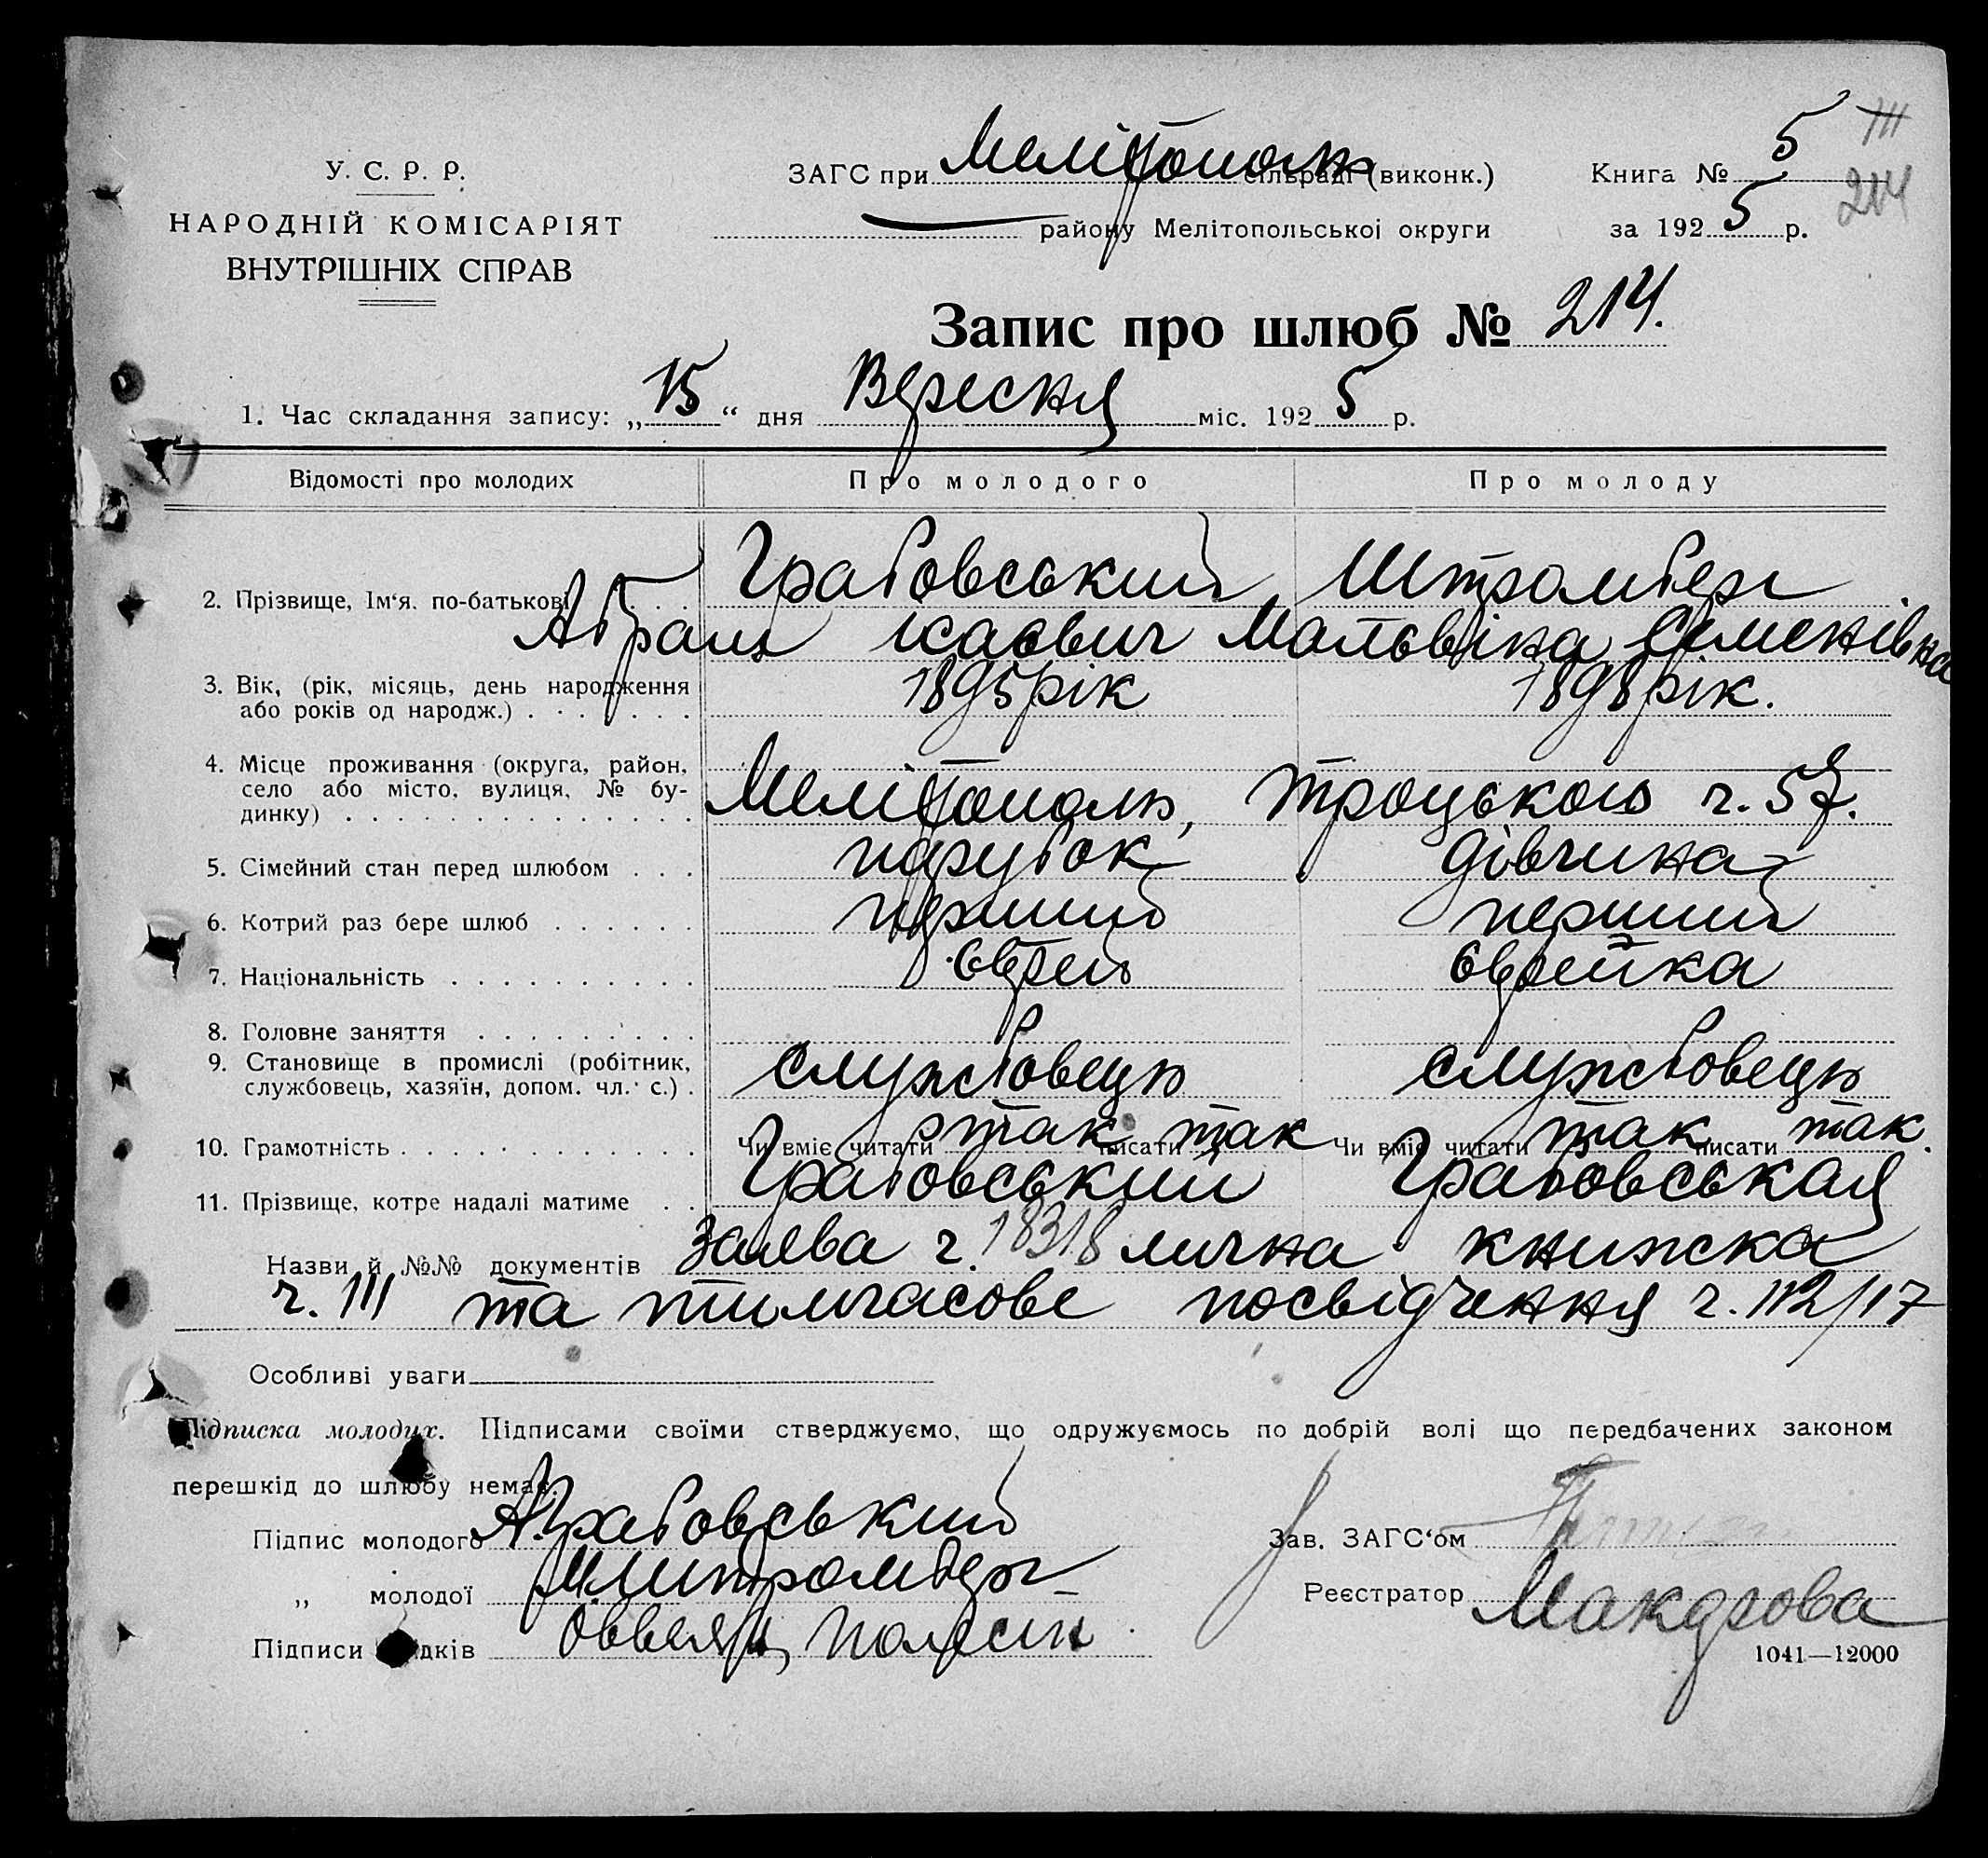 У. С. Р. Р.
НАРОДНІЙ КОМІСАРІЯТ
ВНУТРІШНІХ СПРАВ
ЗАГС при Мелітополь сільраді (виконк.)
району Мелітопольськоі округи
Книга № 5
за 1925 р.
111
214
Запис про шлюб № 214.
1. Час складання запису: „15“ дня Вересня міс. 1925 р.
Відомості про молодих Про молодого Про молоду
2. Прізвище, Ім‘я. по-батькові Грабовський Штромберг
Абрам Ісаєвич Мальвіна Семенівна
3. Вік, (рік, місяць, день народження 1895 рік 1898 рік.
або років од народж.)
4. Місце проживання (округа, район,
село або місто, вулиця, № бу- Мелітополь, Троцького ч. 57.
динку)
5. Сімейний стан перед шлюбом парубок дівчина
6. Котрий раз бере шлюб перший перший
7. Національність єврей єврейка
8. Головне заняття
9. Становище в промислі (робітник, службовець службовець
службовець, хазяїн, допом. чл. с.)
10. Грамотність Чи вміє читати так писати так Чи вміє читати так писати так.
11. Прізвище, котре надалі матиме Грабовський Грабовськая
Назви й №№ документів Заява ч. 18318 лична книжка
ч. 111 та тимчасове посвідчення ч. 112/17
Особливі уваги
Підписка молодих. Підписами своїми стверджуємо, що одружуємось по добрій волі що передбачених законом
перешкід до шлюбу немає.
Підпис молодого А. Грабовський
„ молодої М. Штромберг
Підписи свідків
Зав. ЗАГС‘ом
Реєстратор
1041—12000